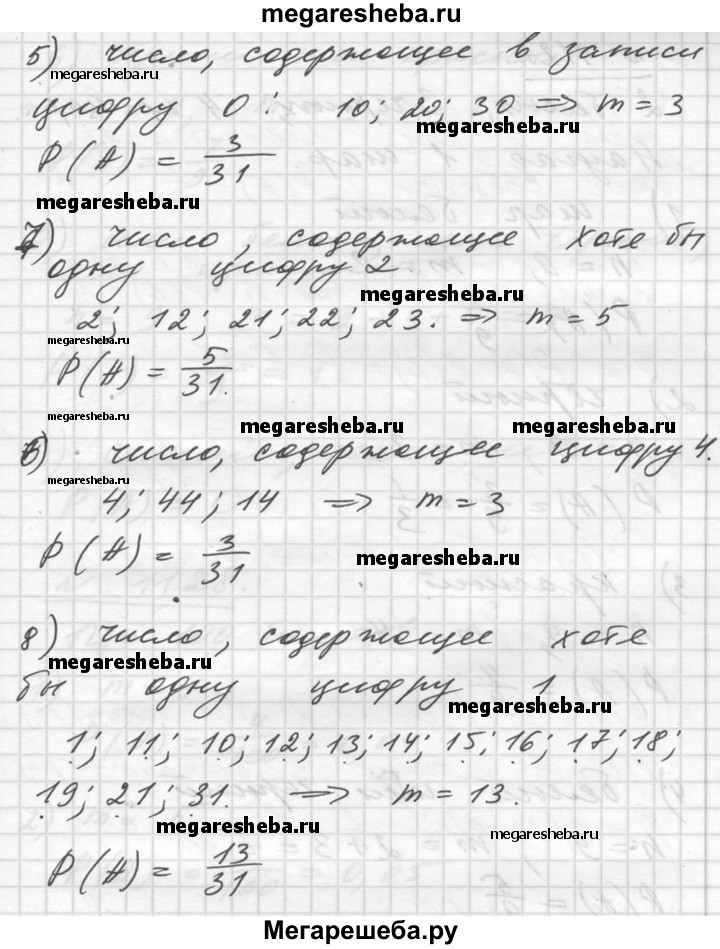 megaresheba.ru
5) число, содержащее в записи
megaresheba.ru
цифру 0: 10; 20; 30 => m = 3
megaresheba.ru
P(A) = 3/31
megaresheba.ru
7) число, содержащее хотя бы
одну цифру 2.
megaresheba.ru
2; 12; 21; 22; 23. => m = 5
megaresheba.ru
P(A) = 5/31.
megaresheba.ru
megaresheba.ru megaresheba.ru
6) число, содержащее цифру 4.
megaresheba.ru
4; 44; 14 => m = 3
P(A) = 3/31
megaresheba.ru
8) число, содержащее хотя
megaresheba.ru
бы одну цифру 1
megaresheba.ru
1; 11; 10; 12; 13; 14; 15; 16; 17; 18;
19; 21; 31. => m = 13.
megaresheba.ru
megaresheba.ru
P(A) = 13/31
Мегарешеба.ру